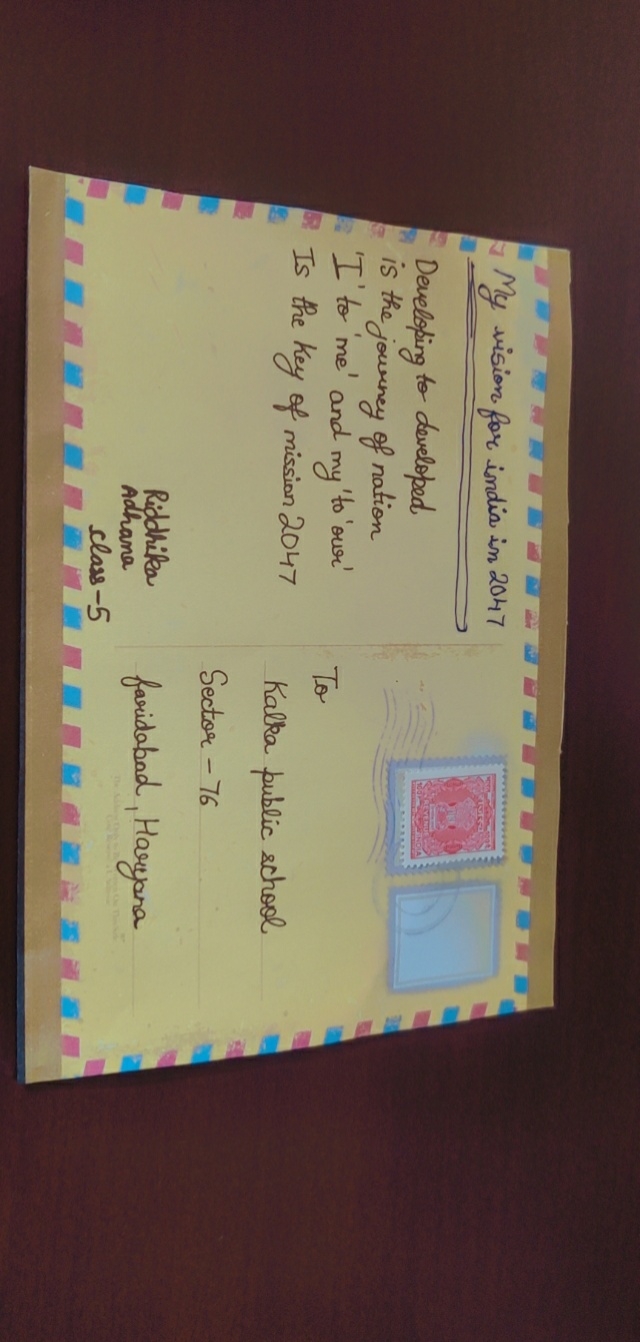 My vision for india in 2047
Developing to developed
is the journey of nation
'I' to 'me' and my 'to 'our'
Is the key of mission 2047
Riddhika
Adhana
class-5
To
Kalka public school
Sector - 76
faridabad, Haryana